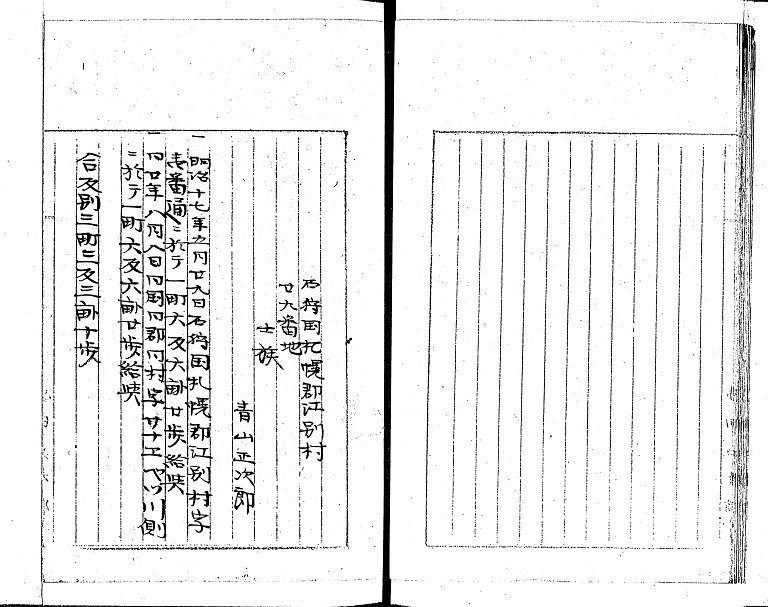 石狩国札幌郡江別村
廿九番地
士族
青山正次郎
一明治十七年五月廿九日石狩国札幌郡江別村字
壱番通ニ於テ一町六反六畝廿歩給与
一同廿年八月八日同国同郡同村字
川側
ニ於テ一町六反六畝廿歩給与
合反別三町三反三畝十歩